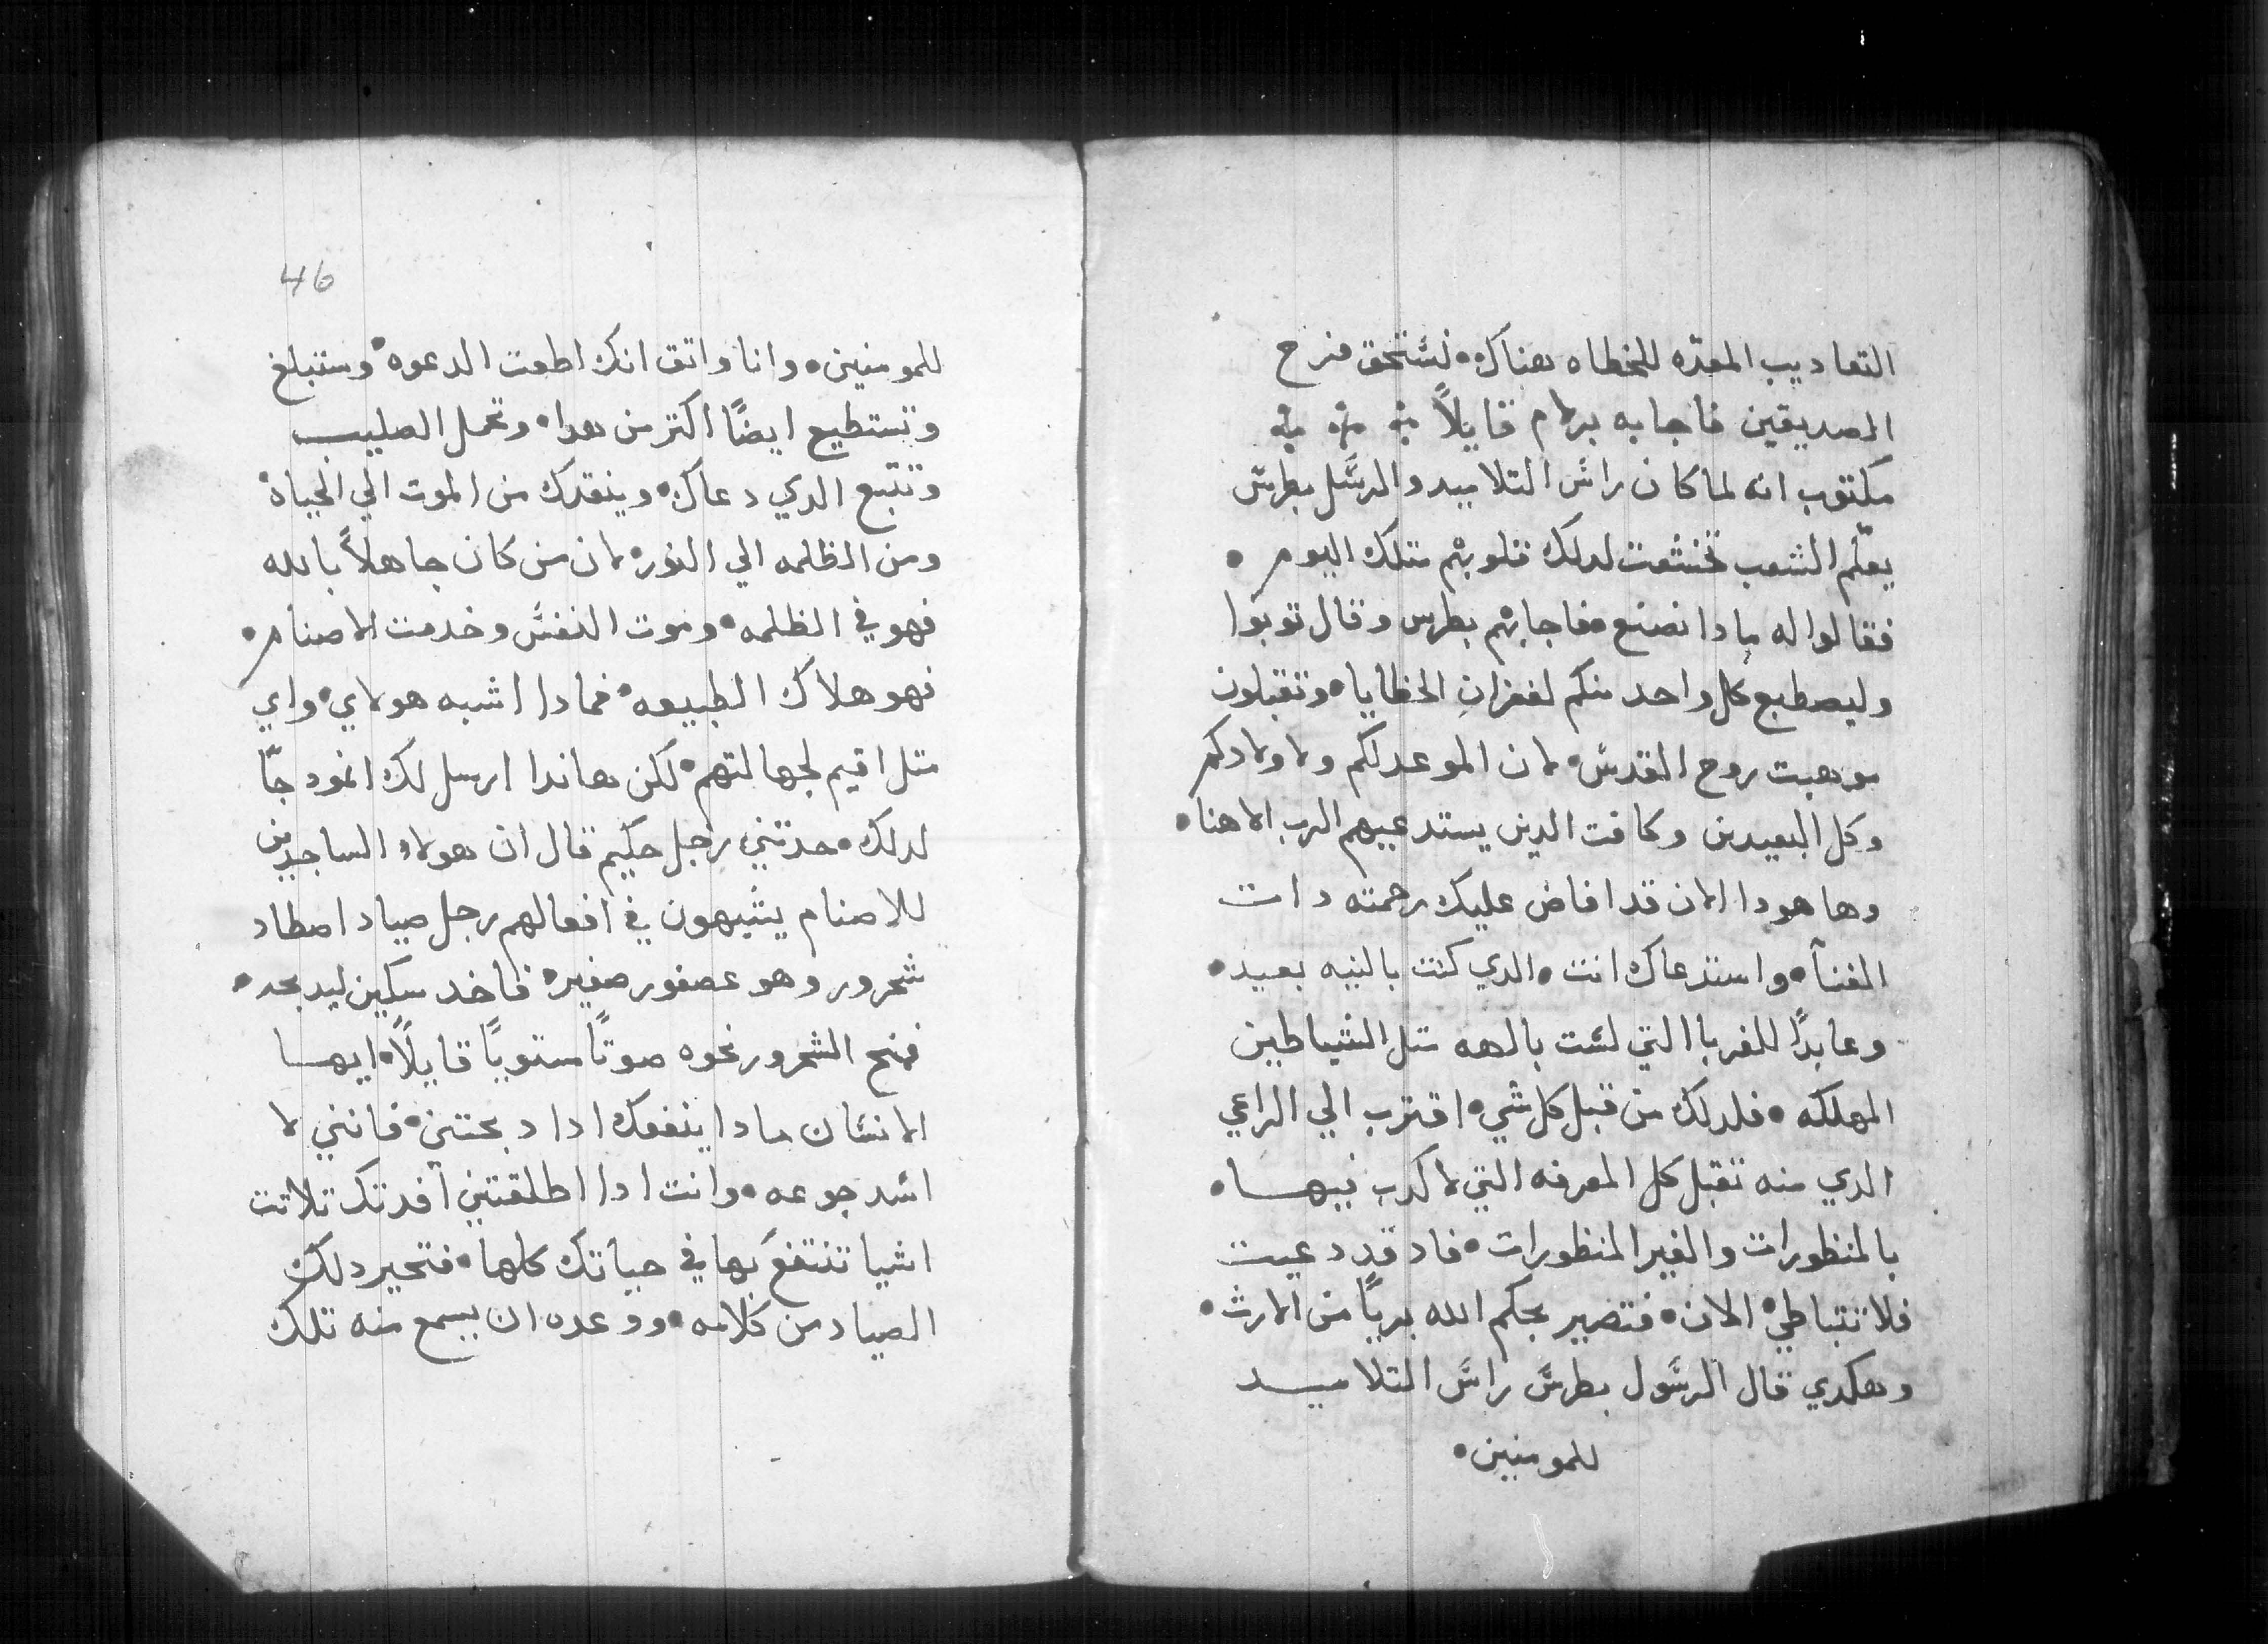 التعاديب المعدّه للخطاه هناك • لنستحق فرح
الصديقين فاجابه برلام قايلاً
مكتوب انه لما كان راس التلاميد والرسل بطرس
يعلّم الشعب تخشعت لدلك قلوبهم متلك اليوم •
فقالوا له مادا نصنع فاجابهم بطرس وقال توبوا
وليصطبع كل واحد منكم لغفران الخطايا • وتقبلون
موهبت روح القدس • لان الموعد لكم ولاولادكم
وكل البعيدين وكافت الدين يستدعيهم الرب الاهنا •
وها هودا الان قد افاض عليك رحمته دات
الغنآ • واستدعاك انت • الدي كنت بالنيه بعيد •
وعابدًا للغربا التي لست بالهه متل الشياطين
المهلكه • فلدلك من قبل كل شي • اقترب الي الراعي
الدي منه تقبل كل المعرفه التي لا كدب فيها •
بالمنظورات والغير المنظورات • فاد قد دعيت
فلا تتباطي • الان • فتضير بحكم الله بريًا من الارث •
وهكدي قال الرسول بطرس راس التلاميد
للمومنين •
46
للمومنين • وانا واتق انك اطعت الدعوه • وستبلغ
وتستطيع ايضًا اكتر من هدا • وتحمل الصليب
وتتبع الدي دعاك • وينقدك من الموت الي الحياة •
ومن الظلمه الي النور • لان من كان جاهلاً بالله
فهو في الظلمه • وموت النفس وخدمت الاصنام •
فهو هلاك الطبيعه • فمادا اشبه هولاي • واي
متل اقيم لجهالتهم • لكن هاندا ارسل لك انمودجًا
لدلك • حدتني رجل حكيم قال ان هولاء الساجدين
للاصنام يشبهون في افعالهم رجل صياد اصطاد
شحرور وهو عصفور صغير • فاخد سكين ليدبحه •
فمنح الشحرور نحوه صوتًا مستويًا قايلاً • ايها
الانسان مادا ينفعك ادا دبحتني • فانني لا
اسد جوعه • وانت ادا اطلقتني افدتك تلاتت
اشيا تنتفع بها في حياتك كلها • فتحير دلك
الصياد من كلامه • ووعده ان يسمع منه تلك